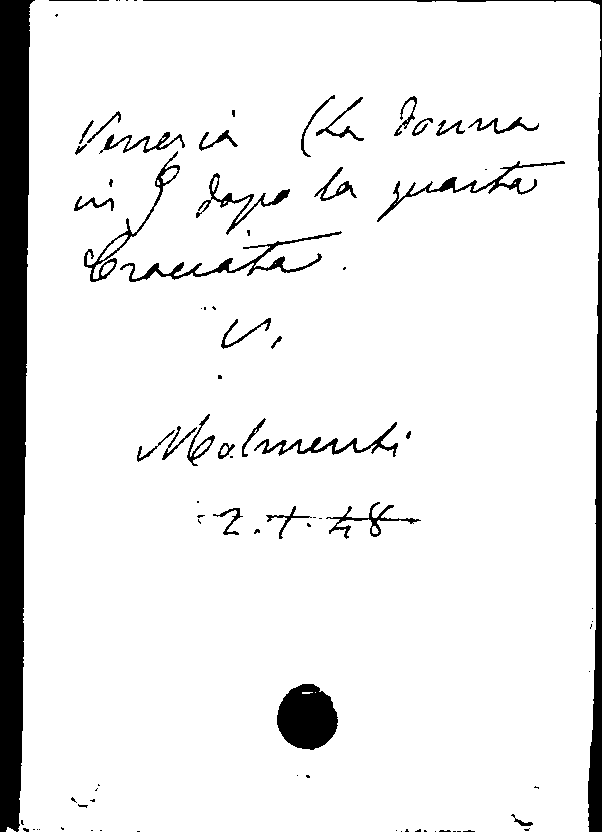 Venezia (La donna
in) dopo la quarta
Crociata.
V.
Molmenti
2.I.48